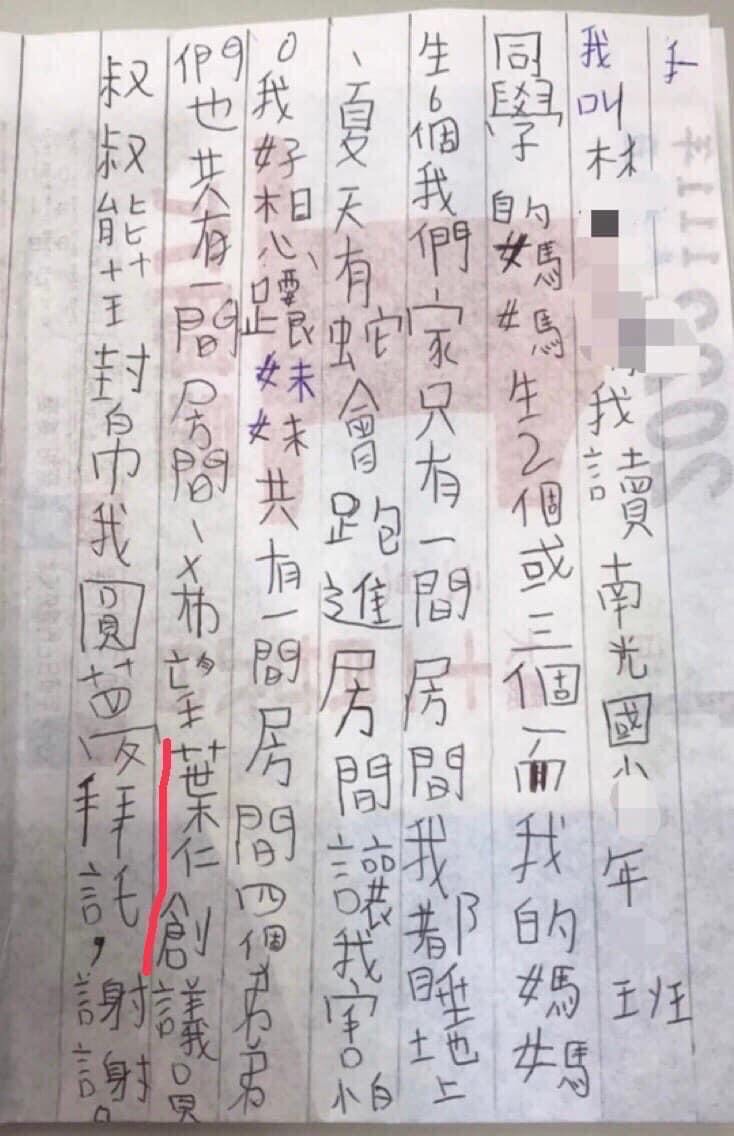 我叫林 我讀南光國小 年 班
同學的媽媽生2個或三個而我的媽媽
生6個我們家只有一間房間我都睡地上
、夏天有蛇會跑進房間讓我害怕
。我好想跟妹妹共有一間房間四個弟弟
們也共有一間房間、希望葉仁創議員
叔叔能在幫我圓夢、拜託，謝謝。